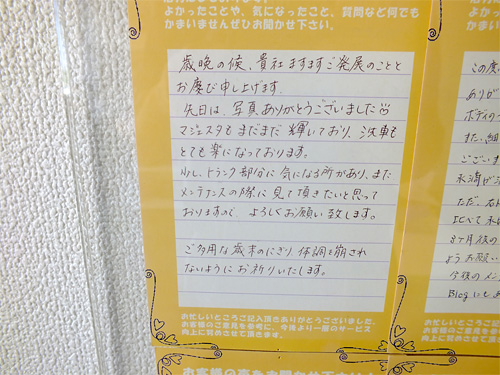 よかったことや、気になったこと、質問など何でも
かまいませんぜひお聞かせ下さい。
歳晩の候、貴社ますますご発展のことと
お慶び申し上げます。
先日は、写真ありがとうございました
マジェスタもまだまだ輝いており、洗車も
とても楽になっております。
少し、トランク部分に気になる所があり、また
メンテナンスの際に見て頂きたいと思って
おりますので、よろしくお願い致します。
ご多用な歳末のにぎり、体調を崩され
ないようにお祈りいたします。
お忙しいところご記入頂きありがとうございました。
お客様のご意見を参考に、今後より一層のサービス
向上に努めさせて頂きます。
お客様の声をお聞かせ下さい
よかった
かまいま
この度
ありが
ボディの
また、細
ございま
永満ぜ
ただ、
比べて
3ヶ月後の
ようお願い
今後の
Blogにも
お忙しいと
お客様のご
向上に努め